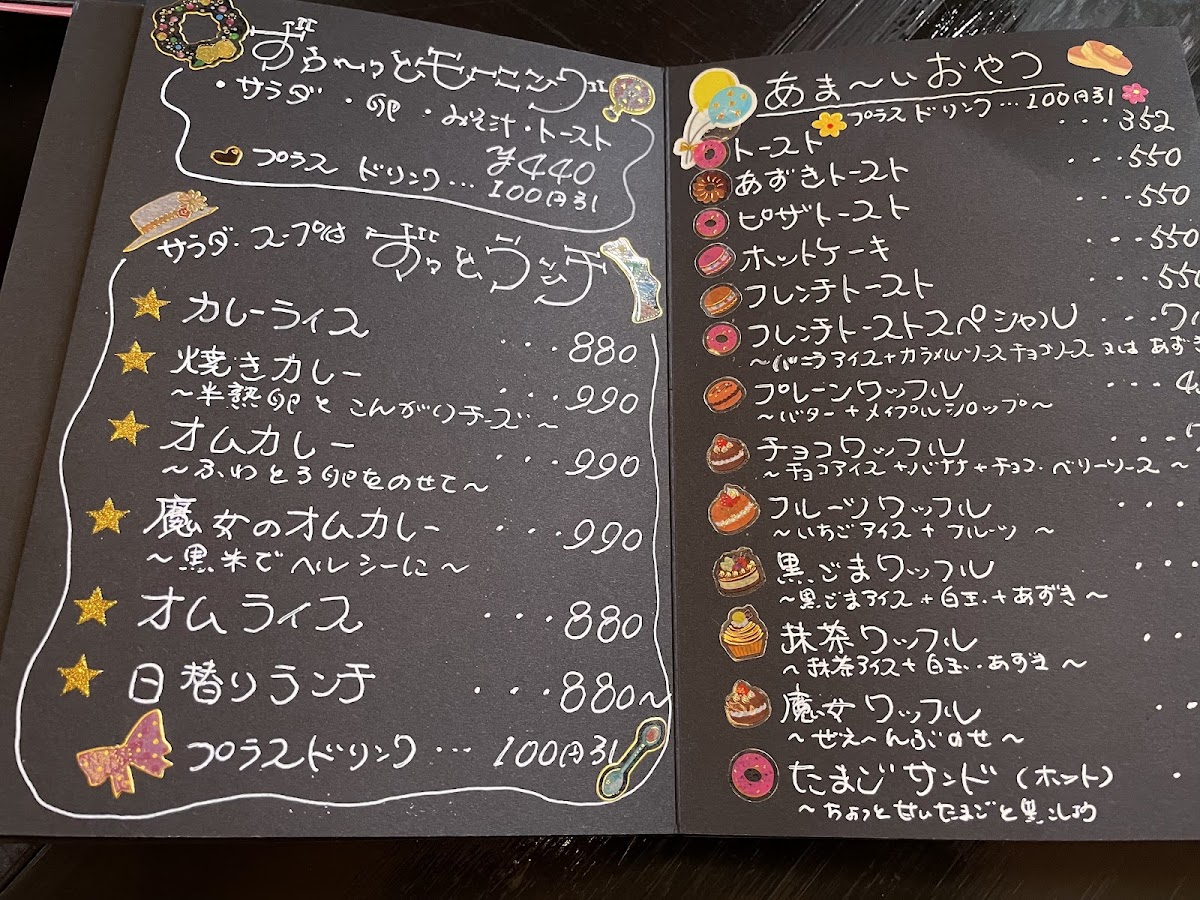 ずぅ〜っとモーニング
・サラダ ・卵 ・みそ汁・トースト
¥440
プラス ドリンク… 100円引
サラダ・スープは ずっとランチ
カレーライス ・・・880
焼きカレー ・・・990
〜半熟卵と こんがりチーズ〜
オムカレー ・・・990
〜ふわとろ卵をのせて〜
魔女のオムカレー ・・・990
〜黒米でヘルシーに〜
オムライス ・・・880
日替りランチ ・・・880〜
プラスドリンク … 100円引
あま〜いおやつ
プラスドリンク…100円引
トースト ・・・352
あずきトースト ・・・550
ピザトースト ・・・550
ホットケーキ ・・・550
フレンチトースト ・・・550
フレンチトーストスペシャル ・・・
〜バニラアイス+カラメルソース チョコソース 又は あずき
プレーンワッフル ・・・
〜バター+メイプルシロップ〜
チョコワッフル ・・・
〜チョコアイス+バナナ+チョコ・ベリーソース〜
フルーツワッフル ・・・
〜いちごアイス+フルーツ 〜
黒ごまワッフル ・・・
〜黒ごまアイス+白玉・+あずき〜
抹茶ワッフル ・・
〜抹茶アイス+白玉・・あずき 〜
魔女ワッフル ・・
〜ぜえ〜んぶのせ〜
たまごサンド(ホット) ・
〜ちょっと甘いたまごと黒こしょう